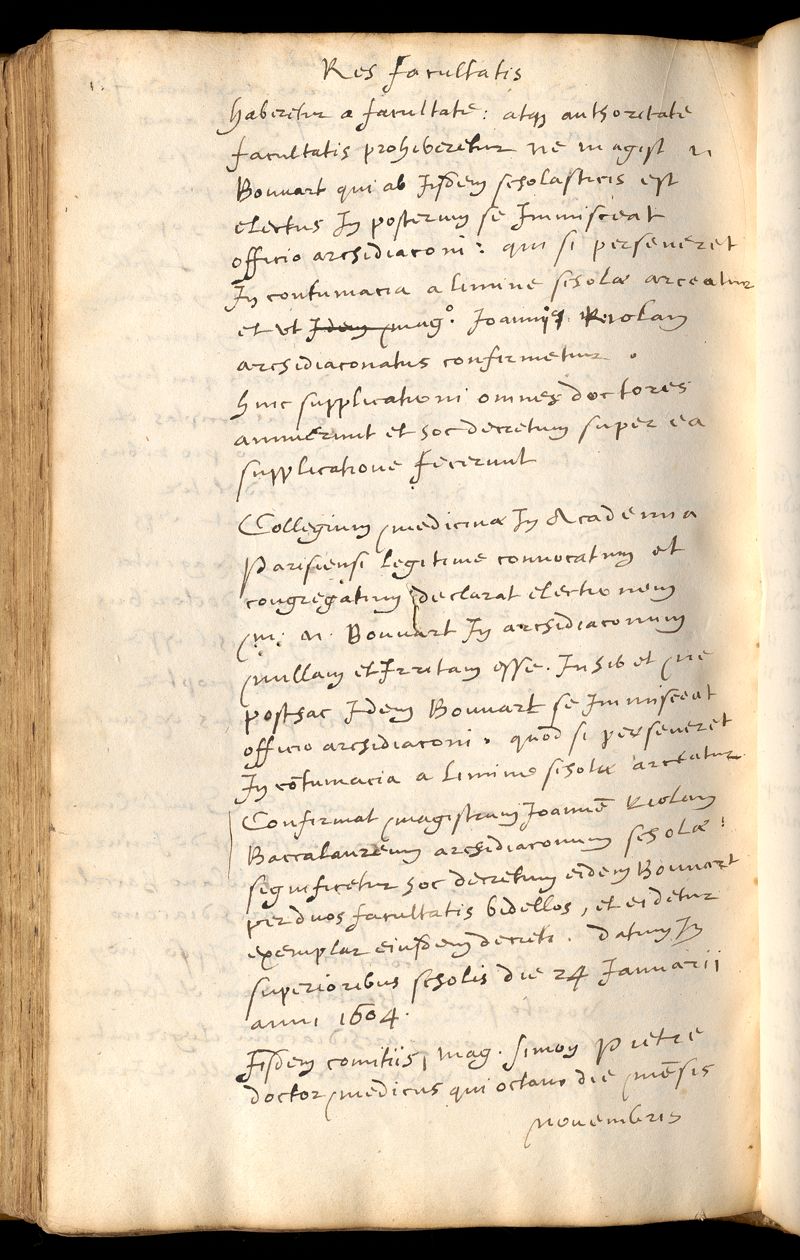 Res facultatis
haberetur a facultate: atq3 authoritate
facultatis prohiberetur ne magist n
Bouuart qui ab Iisdem scholasticis est
electus In posterum se Immisceat
officio archidiaconi: qui si perseueret
In contumacia a limine scholæ arceatur
et ut Idem mag.º Joannis Riolam
archidiaconatus confirmetur .
huic supplicationi omnes doctores
annuerunt et hoc decretum super ea
supplicatione fecerunt
Collegium medicinæ In Academia
Parisiensi legitime conuocatum et
congregatum declarat electionem
m: n. Bouuart In archidiaconum
nullam et Irritam esse. Inhibet ne
posthac Idem Bouuart se Immisceat
officio archidiaconi. quod si perseueret
In cōtumacia a limine scholæ arceatur
Confirmat magistrum Joannē Riolam
Baccalaureum archidiaconum scholæ:
significetur hoc decretum eidem Bouuart
per duos facultatis bidellos, et ei detur
exemplar eiusdem decreti. datum In
superioribus scholis die 24 Januarii
anni 1604.
Iisdem comitiis, mag. simon Pietre
doctor medicus qui octauo die mēsis
nouembris